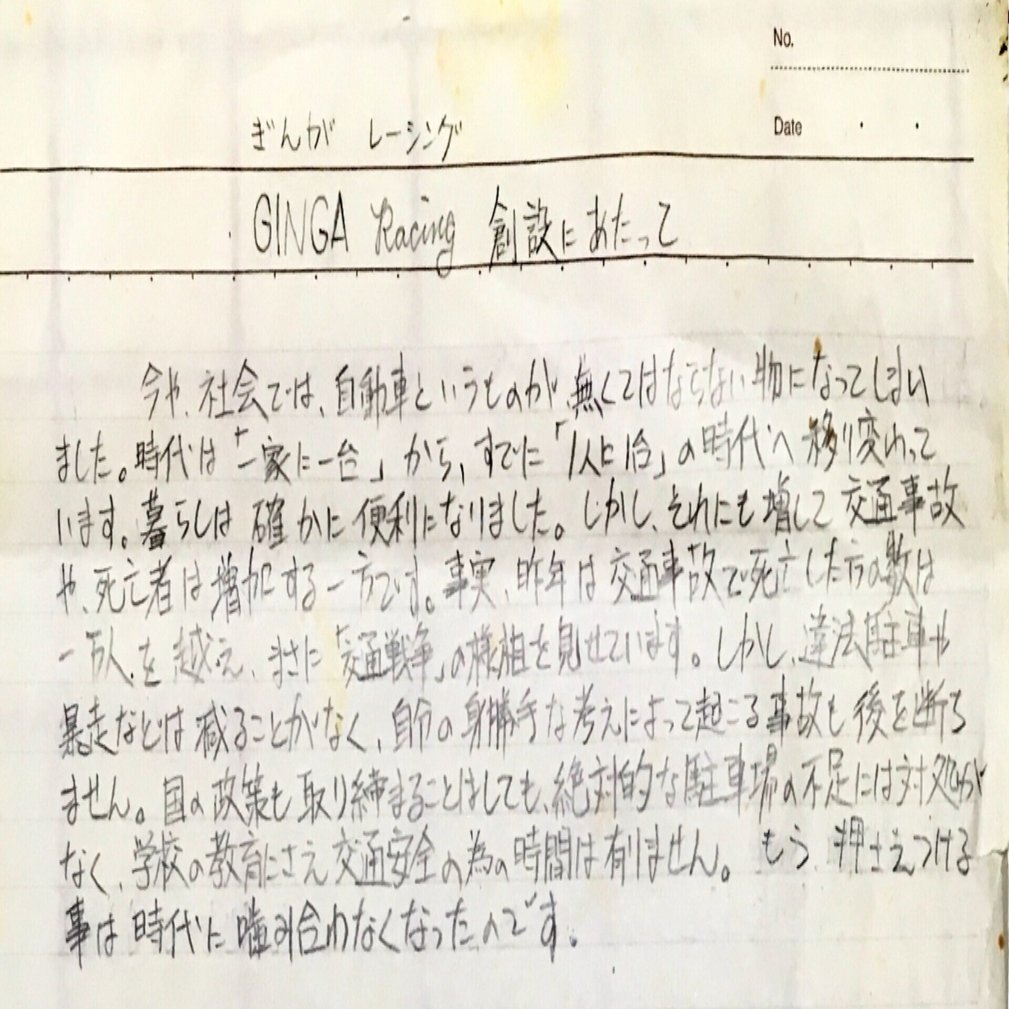 No.
Date
ぎんが レーシング
GINGA Racing 創設にあたって
今や、社会では、自動車というものが、無くてはならない物になってしまい
ました。時代は「一家に一台」から、すでに「1人に1台」の時代へ移り変わって
います。暮らしは確かに便利になりました。しかし、それにも増して交通事故
や、死亡者は増加する一方です。事実、昨年は交通事故で死亡した方の数は
一万人を越え、まさに「交通戦争」の様相を見せています。しかし、違法駐車や
暴走などは減ることがなく、自分の身勝手な考えによって起こる事故も後を断ち
ません。国の政策も取り締まることはしても、絶対的な駐車場の不足には対処が
なく、学校の教育にさえ交通安全の為の時間は有りません。もう、押さえつける
事は時代に噛み合わなくなったのです。